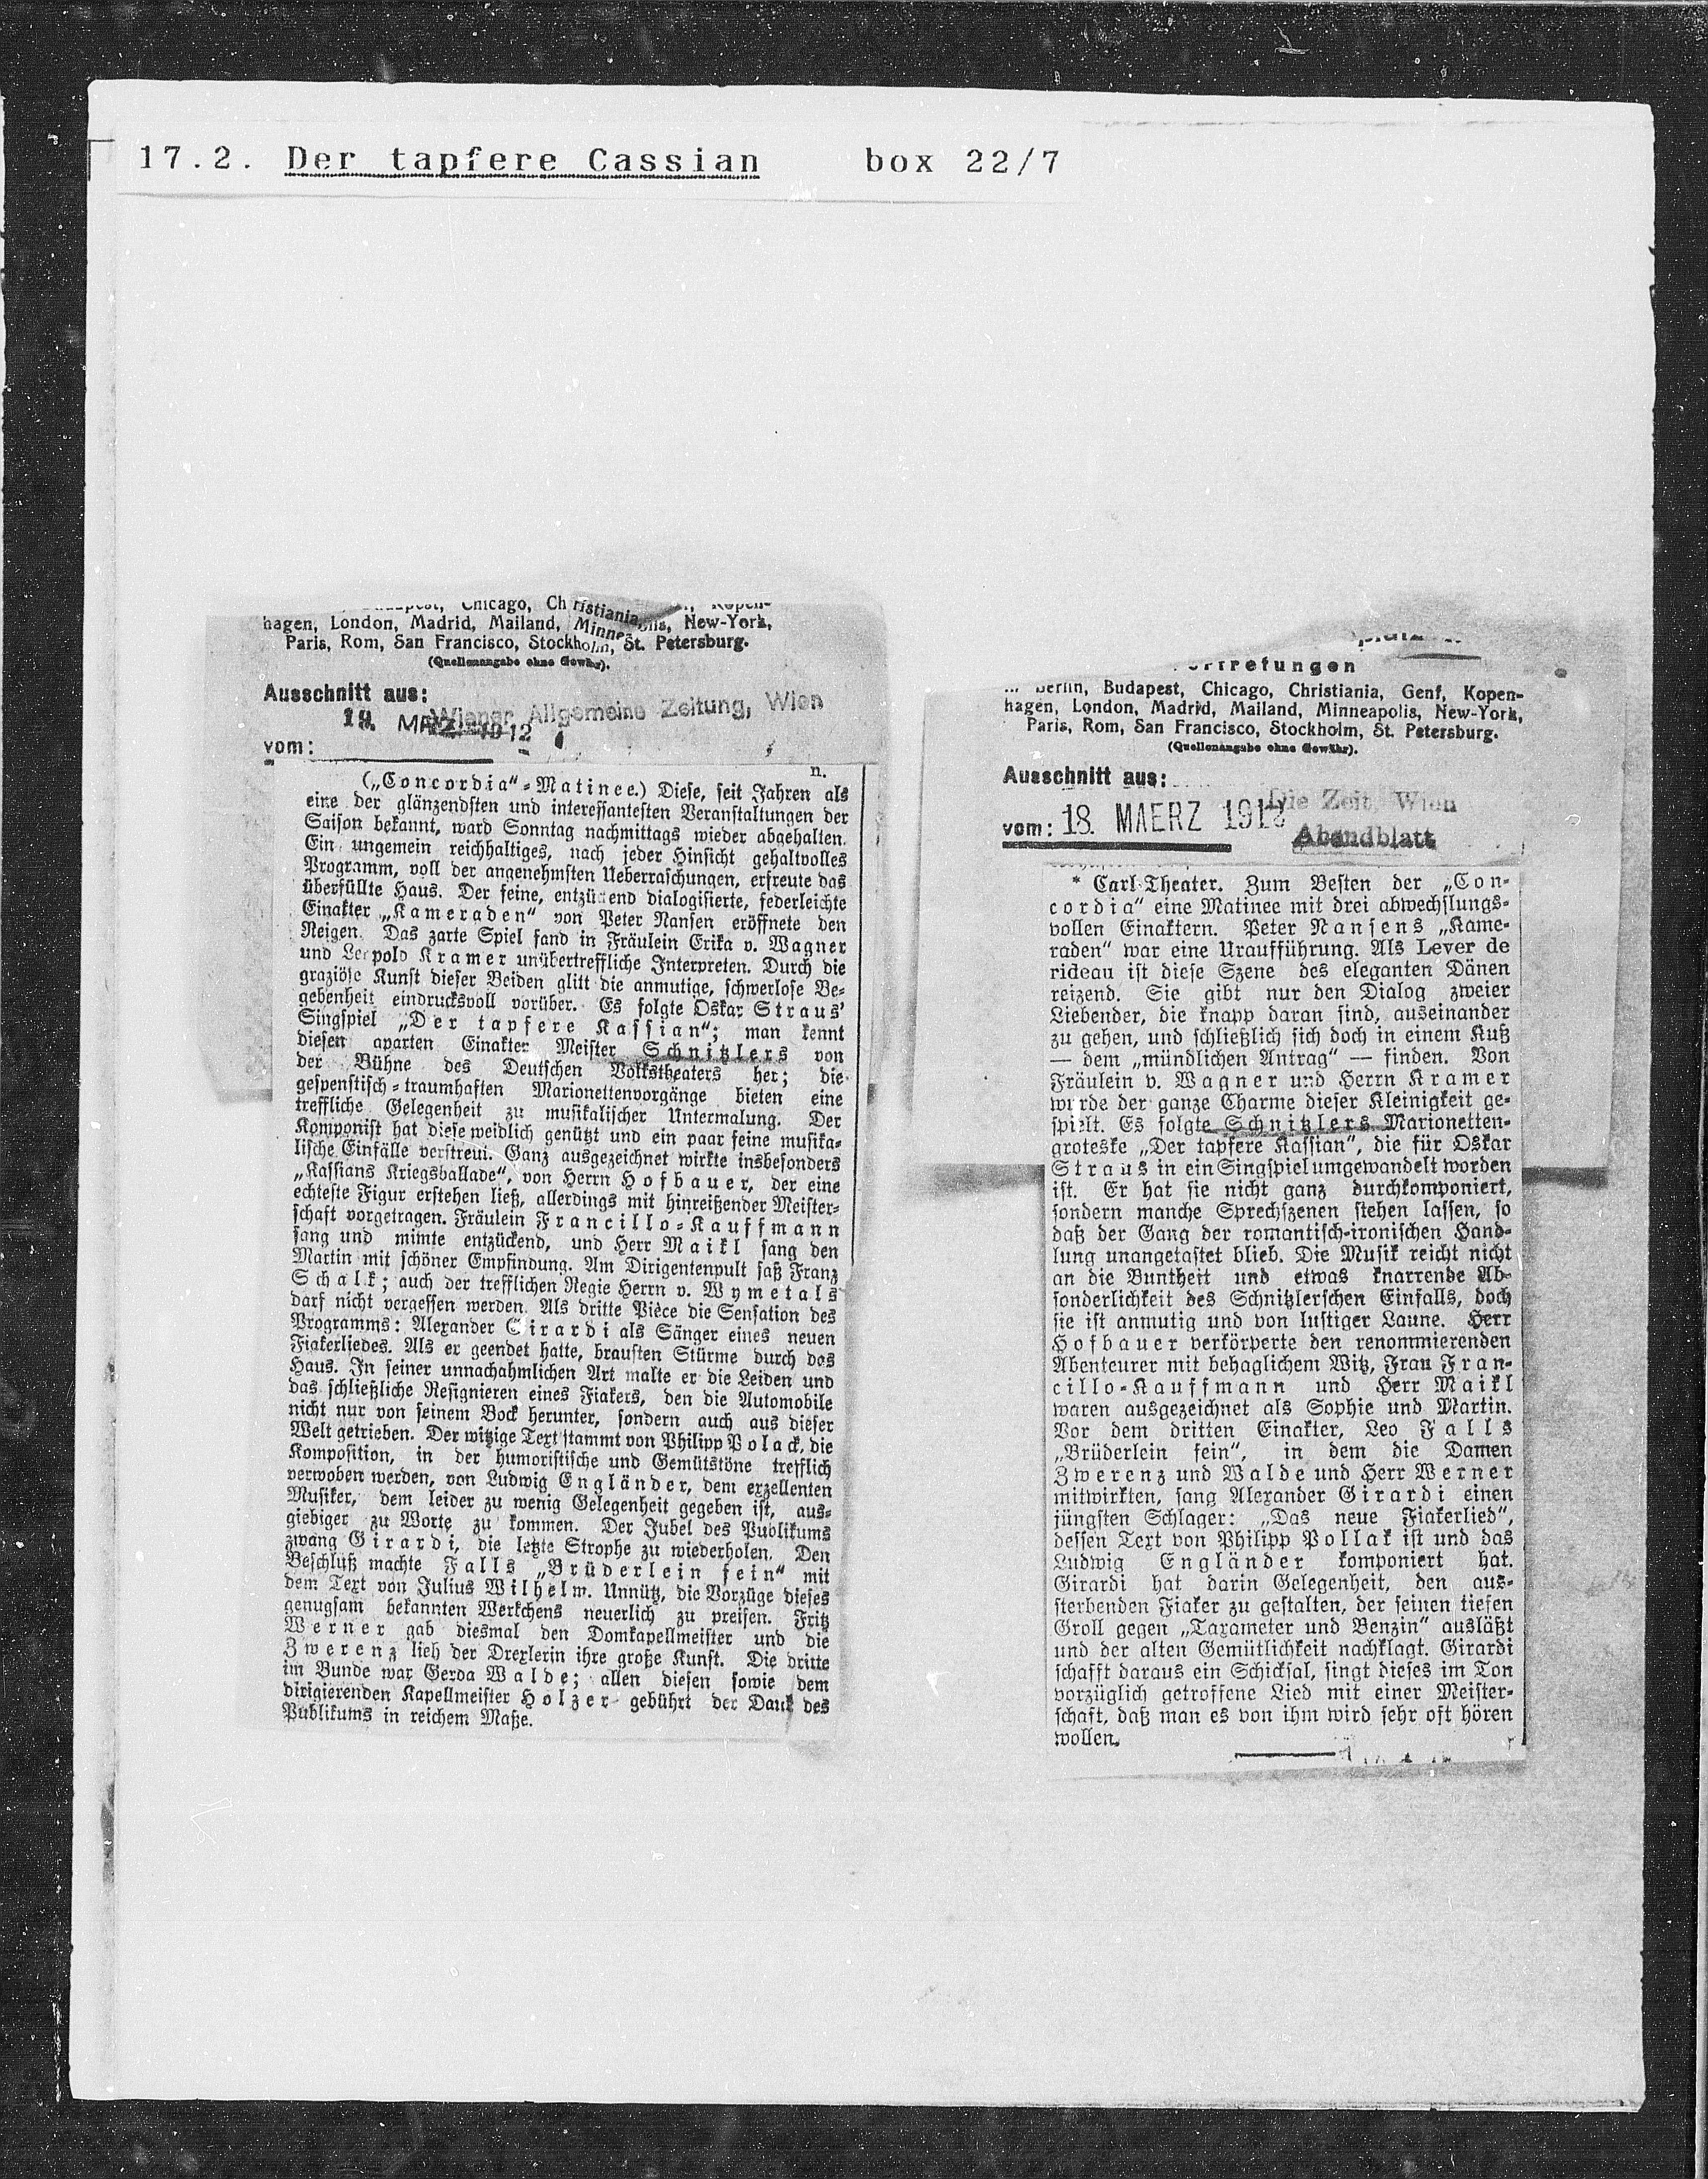 17.2. Der tapfere Cassian box 22/7
Chicago, Christiania,
hagen, London, Madrid, Mailand, New-York,
Paris, Rom, San Francisco, Stockholm, St. Petersburg.
(Quellenangabe ohne Gewähr).
Ausschnitt aus:
Wiener Allgemeine Zeitung, Wien
19. MÄRZ 1912
vom:
n.
(„Concordia“-Matinee.) Diese, seit Jahren als
eine der glänzendsten und interessantesten Veranstaltungen der
Saison bekannt, ward Sonntag nachmittags wieder abgehalten.
Ein ungemein reichhaltiges, nach jeder Hinsicht gehaltvolles
Programm, voll der angenehmsten Ueberraschungen, erfreute das
überfüllte Haus. Der feine, entzückend dialogisierte, federleichte
Einakter „Kameraden“ von Peter Nansen eröffnete den
Reigen. Das zarte Spiel fand in Fräulein Erika v. Wagner
und Leopold Kramer unübertreffliche Interpreten. Durch die
graziöse Kunst dieser Beiden glitt die anmutige, schwerlose Be-
gebenheit eindrucksvoll vorüber. Es folgte Oskar Straus'
Singspiel „Der tapfere Kassian“; man kennt
diesen aparten Einakter Meister Schnitzlers von
der Bühne des Deutschen Volkstheaters her; die
gespenstisch-traumhaften Marionettenvorgänge bieten eine
treffliche Gelegenheit zu musikalischer Untermalung. Der
Komponist hat diese weidlich genützt und ein paar feine musika-
lische Einfälle verstreut. Ganz ausgezeichnet wirkte insbesonders
„Kassians Kriegsballade“, von Herrn Hofbauer, der eine
echteste Figur erstehen ließ, allerdings mit hinreißender Meister-
schaft vorgetragen. Fräulein Francillo-Kauffmann
sang und mimte entzückend, und Herr Maikl sang den
Martin mit schöner Empfindung. Am Dirigentenpult saß Franz
Schalk; auch der trefflichen Regie Herrn v. Wymetals
darf nicht vergessen werden. Als dritte Pièce die Sensation des
Programms: Alexander Girardi als Sänger eines neuen
Fiakerliedes. Als er geendet hatte, brausten Stürme durch das
Haus. In seiner unnachahmlichen Art malte er die Leiden und
das schließliche Resignieren eines Fiakers, den die Automobile
nicht nur von seinem Bock herunter, sondern auch aus dieser
Welt getrieben. Der witzige Text stammt von Philipp Polack, die
Komposition, in der humoristische und Gemütstöne trefflich
verwoben werden, von Ludwig Engländer, dem exzellenten
Musiker, dem leider zu wenig Gelegenheit gegeben ist, aus-
giebiger zu Worte zu kommen. Der Jubel des Publikums
zwang Girardi, die letzte Strophe zu wiederholen. Den
Beschluß machte Falls „Brüderlein fein“ mit
dem Text von Julius Wilhelm. Unnütz, die Vorzüge dieses
genugsam bekannten Werkchens neuerlich zu preisen. Fritz
Werner gab diesmal den Domkapellmeister und die
Zwerenz lieh der Drexlerin ihre große Kunst. Die dritte
im Bunde war Gerda Walde; allen diesen sowie dem
dirigierenden Kapellmeister Holzer gebührt der Dank des
Publikums in reichem Maße.
Berlin, Budapest, Chicago, Christiania, Genf, Kopen-
hagen, London, Madrid, Mailand, Minneapolis, New-York,
Paris, Rom, San Francisco, Stockholm, St. Petersburg.
(Quellenangabe ohne Gewähr).
Ausschnitt aus:
Die Zeit, Wien
vom: 18. MAERZ 1912
Abendblatt
* Carl-Theater. Zum Besten der „Con-
cordia“ eine Matinee mit drei abwechslungs-
vollen Einaktern. Peter Nansens „Kame-
raden“ war eine Uraufführung. Als Lever de
rideau ist diese Szene des eleganten Dänen
reizend. Sie gibt nur den Dialog zweier
Liebender, die knapp daran sind, auseinander
zu gehen, und schließlich sich doch in einem Kuß
— dem „mündlichen Antrag“ — finden. Von
Fräulein v. Wagner und Herrn Kramer
wurde der ganze Charme dieser Kleinigkeit ge-
spielt. Es folgte Schnitzlers Marionetten-
groteske „Der tapfere Kassian“, die für Oskar
Straus in ein Singspiel umgewandelt worden
ist. Er hat sie nicht ganz durchkomponiert,
sondern manche Sprechszenen stehen lassen, so
daß der Gang der romantisch-ironischen Hand-
lung unangetastet blieb. Die Musik reicht nicht
an die Buntheit und etwas knarrende Ab-
sonderlichkeit des Schnitzlerschen Einfalls, doch
sie ist anmutig und von lustiger Laune. Herr
Hofbauer verkörperte den renommierenden
Abenteurer mit behaglichem Witz, Frau Fran-
cillo-Kauffmann und Herr Maikl
waren ausgezeichnet als Sophie und Martin.
Vor dem dritten Einakter, Leo Falls
„Brüderlein fein“, in dem die Damen
Zwerenz und Walde und Herr Werner
mitwirkten, sang Alexander Girardi einen
jüngsten Schlager: „Das neue Fiakerlied“,
dessen Text von Philipp Pollak ist und das
Ludwig Engländer komponiert hat.
Girardi hat darin Gelegenheit, den aus-
sterbenden Fiaker zu gestalten, der seinen tiefen
Groll gegen „Taxameter und Benzin“ ausläßt
und der alten Gemütlichkeit nachklagt. Girardi
schafft daraus ein Schicksal, singt dieses im Ton
vorzüglich getroffene Lied mit einer Meister-
schaft, daß man es von ihm wird sehr oft hören
wollen.